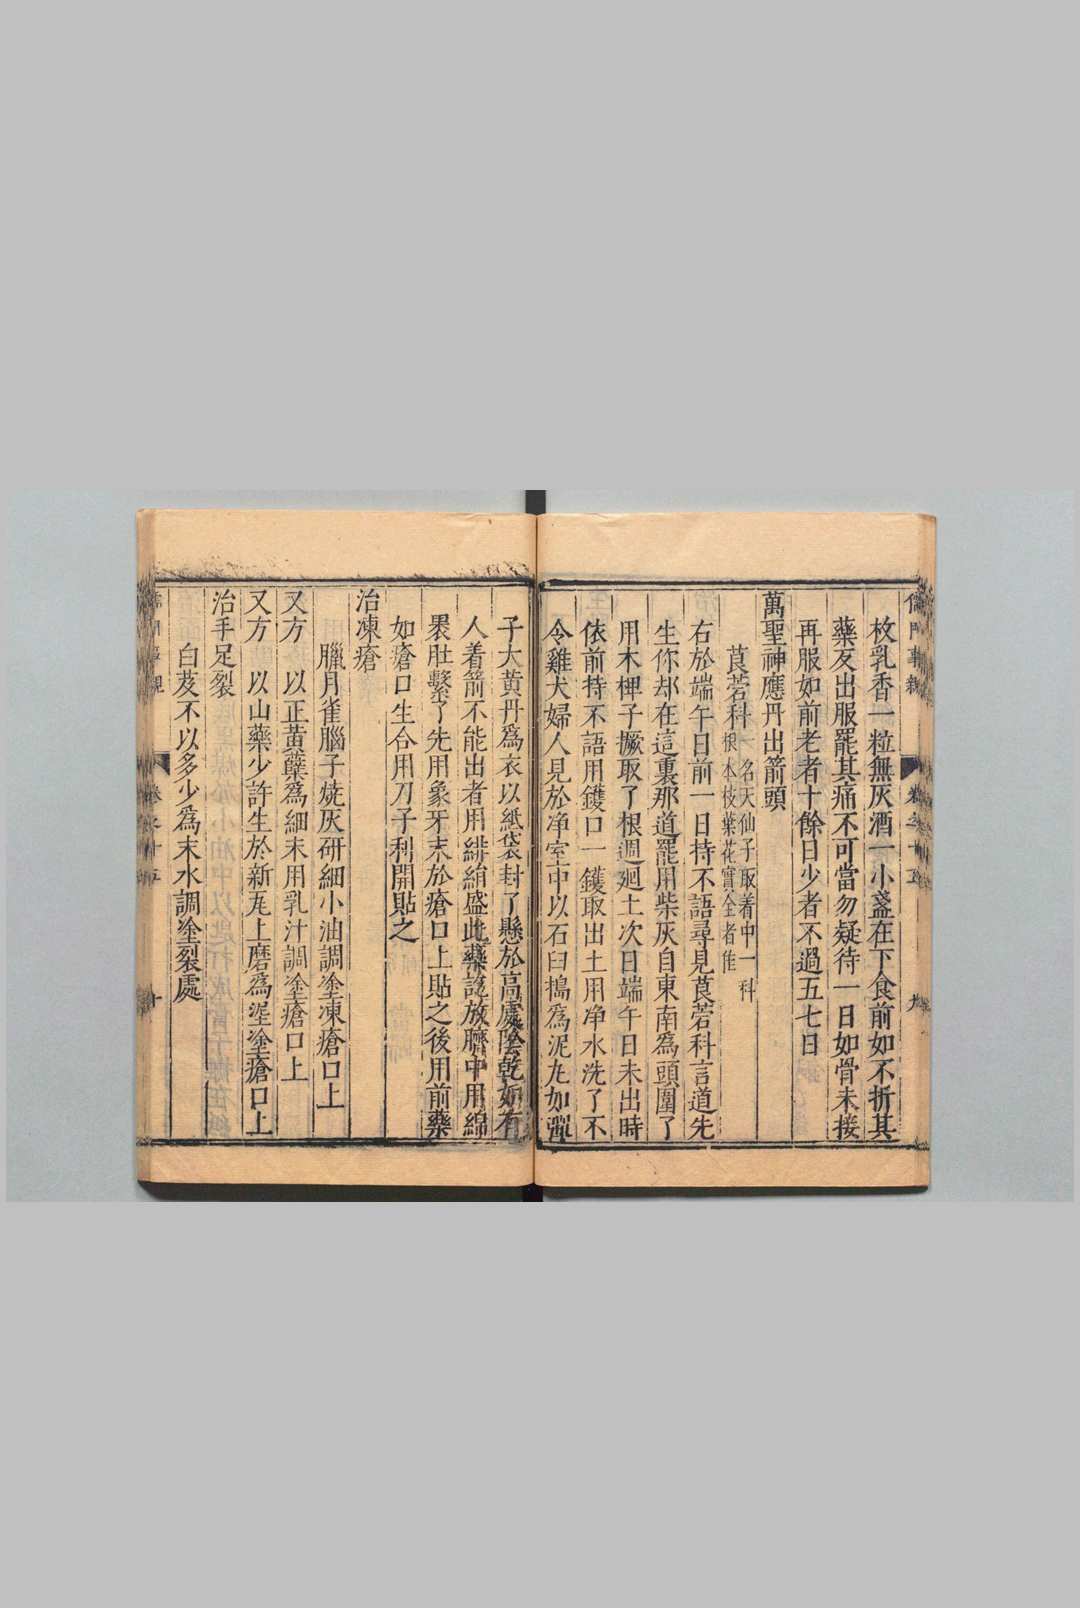 儒門事親 卷之十五 九
枚乳香一粒無灰酒一小盞在下食前如不折其
藥友出服罷其痛不可當勿疑待一日如骨未接
再服如前老者十餘日少者不過五七日
萬聖神應丹出箭頭
莨菪科一名天仙子取着中一科
根本枝葉花實全者佳
右於端午日前一日持不語尋見莨菪科言道先
生你却在這裏那道罷用柴灰自東南爲頭圍了
用木椑子撅取了根週廻土次日端午日未出時
依前持不語用钁口一钁取出土用净水洗了不
令雞犬婦人見於净室中以石臼搗爲泥丸如彈
子大黄丹爲衣以紙袋封了懸於高處陰乾如有
人着箭不能出者用緋絹盛此藥訖放臍中用綿
褁肚繫了先用象牙末於瘡口上貼之後用前藥
如瘡口生合用刀子利開貼之
治凍瘡
臘月雀腦子燒灰研細小油調塗凍瘡口上
又方 以正黄蘗爲細末用乳汁調塗瘡口上
又方 以山藥少許生於新瓦上磨爲埿塗瘡口上
治手足裂
白芨不以多少爲末水調塗裂處
儒門事親 卷之十五 十